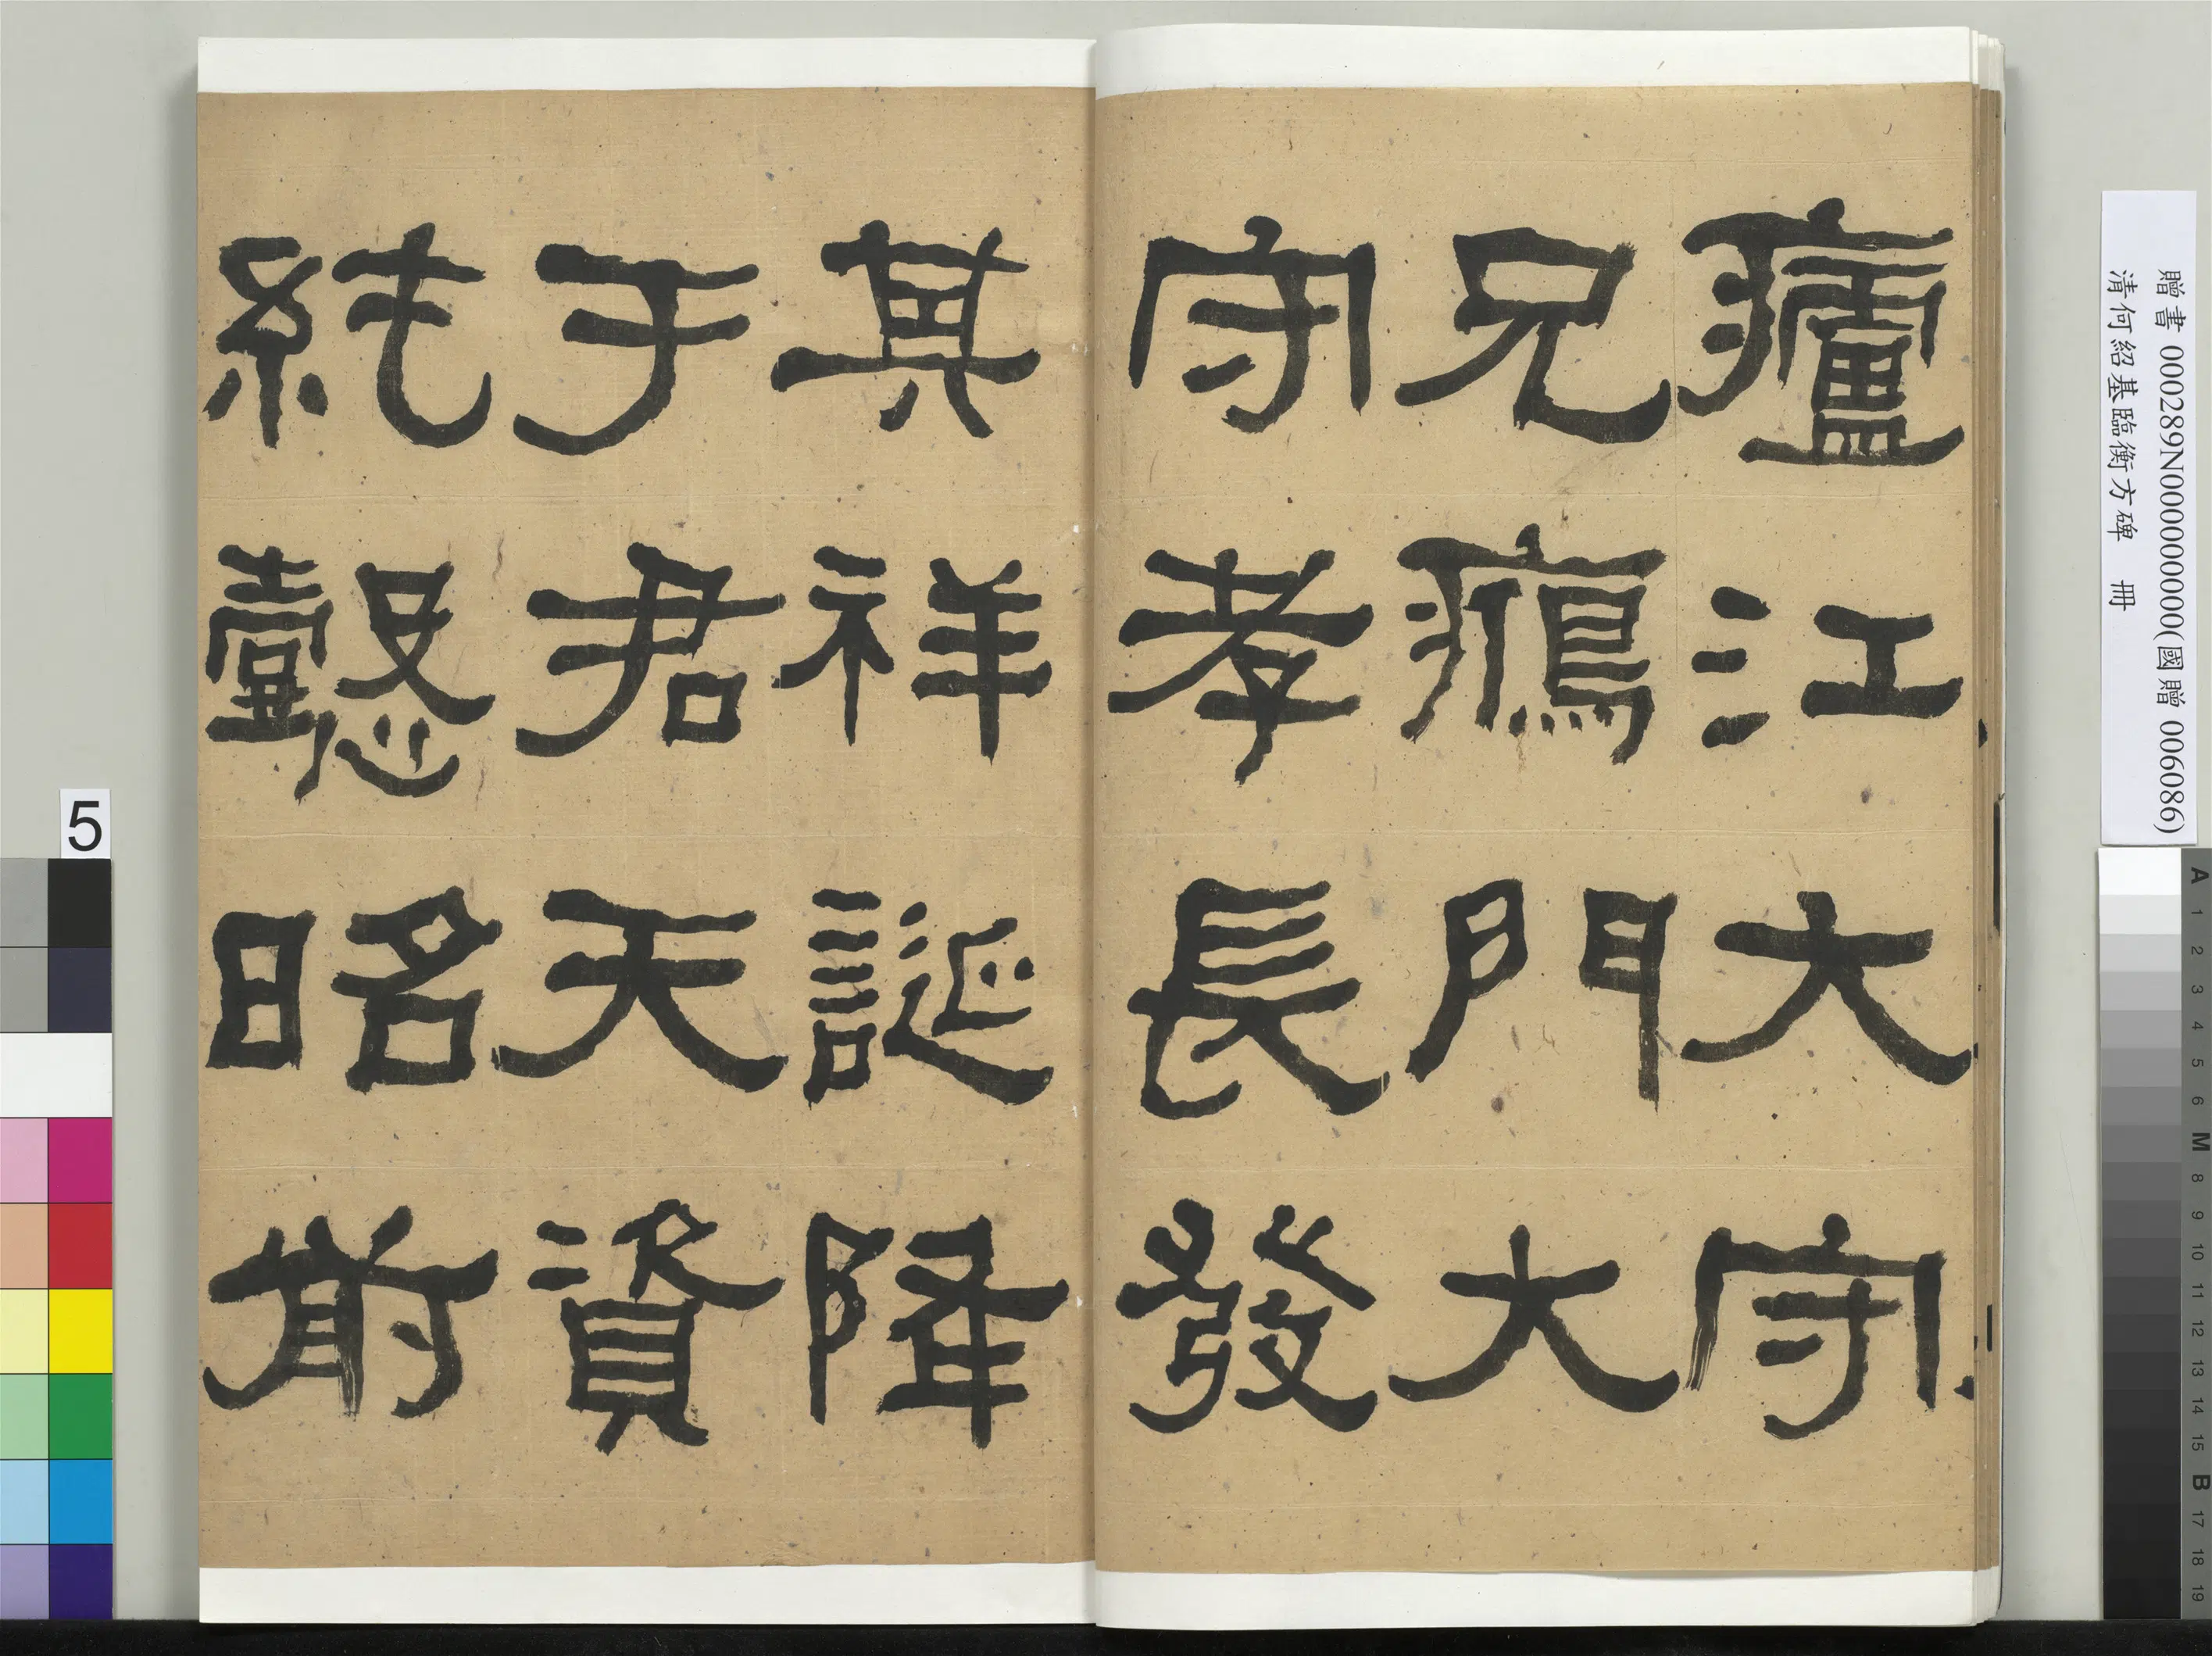 廬江大守
兄鴈門大
守孝長發
其祥誕降
于君天資
純懿昭前
贈書 000289N000000000(國贈 006086)
清何紹基臨衡方碑 冊
5
A 1 2 3 4 5 6 M 8 9 10 11 12 13 14 15 B 17 18 19